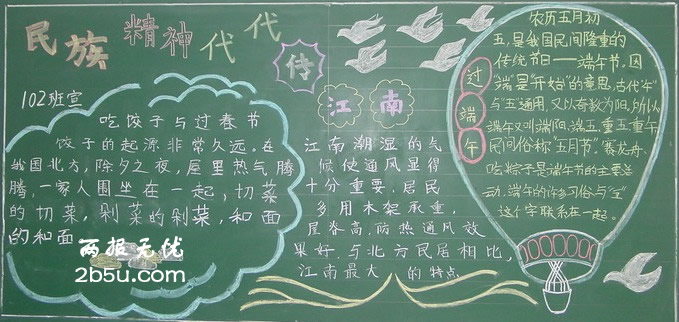 民族精神代代传
102班宣
吃饺子与过春节
饺子的起源非常久远。在
我国北方,除夕之夜,屋里热气腾
腾,一家人围坐在一起,切菜
的切菜,剁菜的剁菜,和面
的和面
两报无忧
2b5u.com
江南
江南潮湿的气
候使通风显得
十分重要.居民
多用木架承重,
屋脊高.防热通风效
果好.与北方民居相比,
江南最大的特点
过端午
农历五月初
五,是我国民间隆重的
传统节日——端午节。因
“端”是“开始”的意思,古代“午”
与“五”通用,又以奇数为阳,所以
端午又叫端阳、端五、重五、重午,
民间俗称“五月节”。赛龙舟、
吃粽子是端午节的主要活
动.端午的许多习俗与“五”
这个字联系在一起。